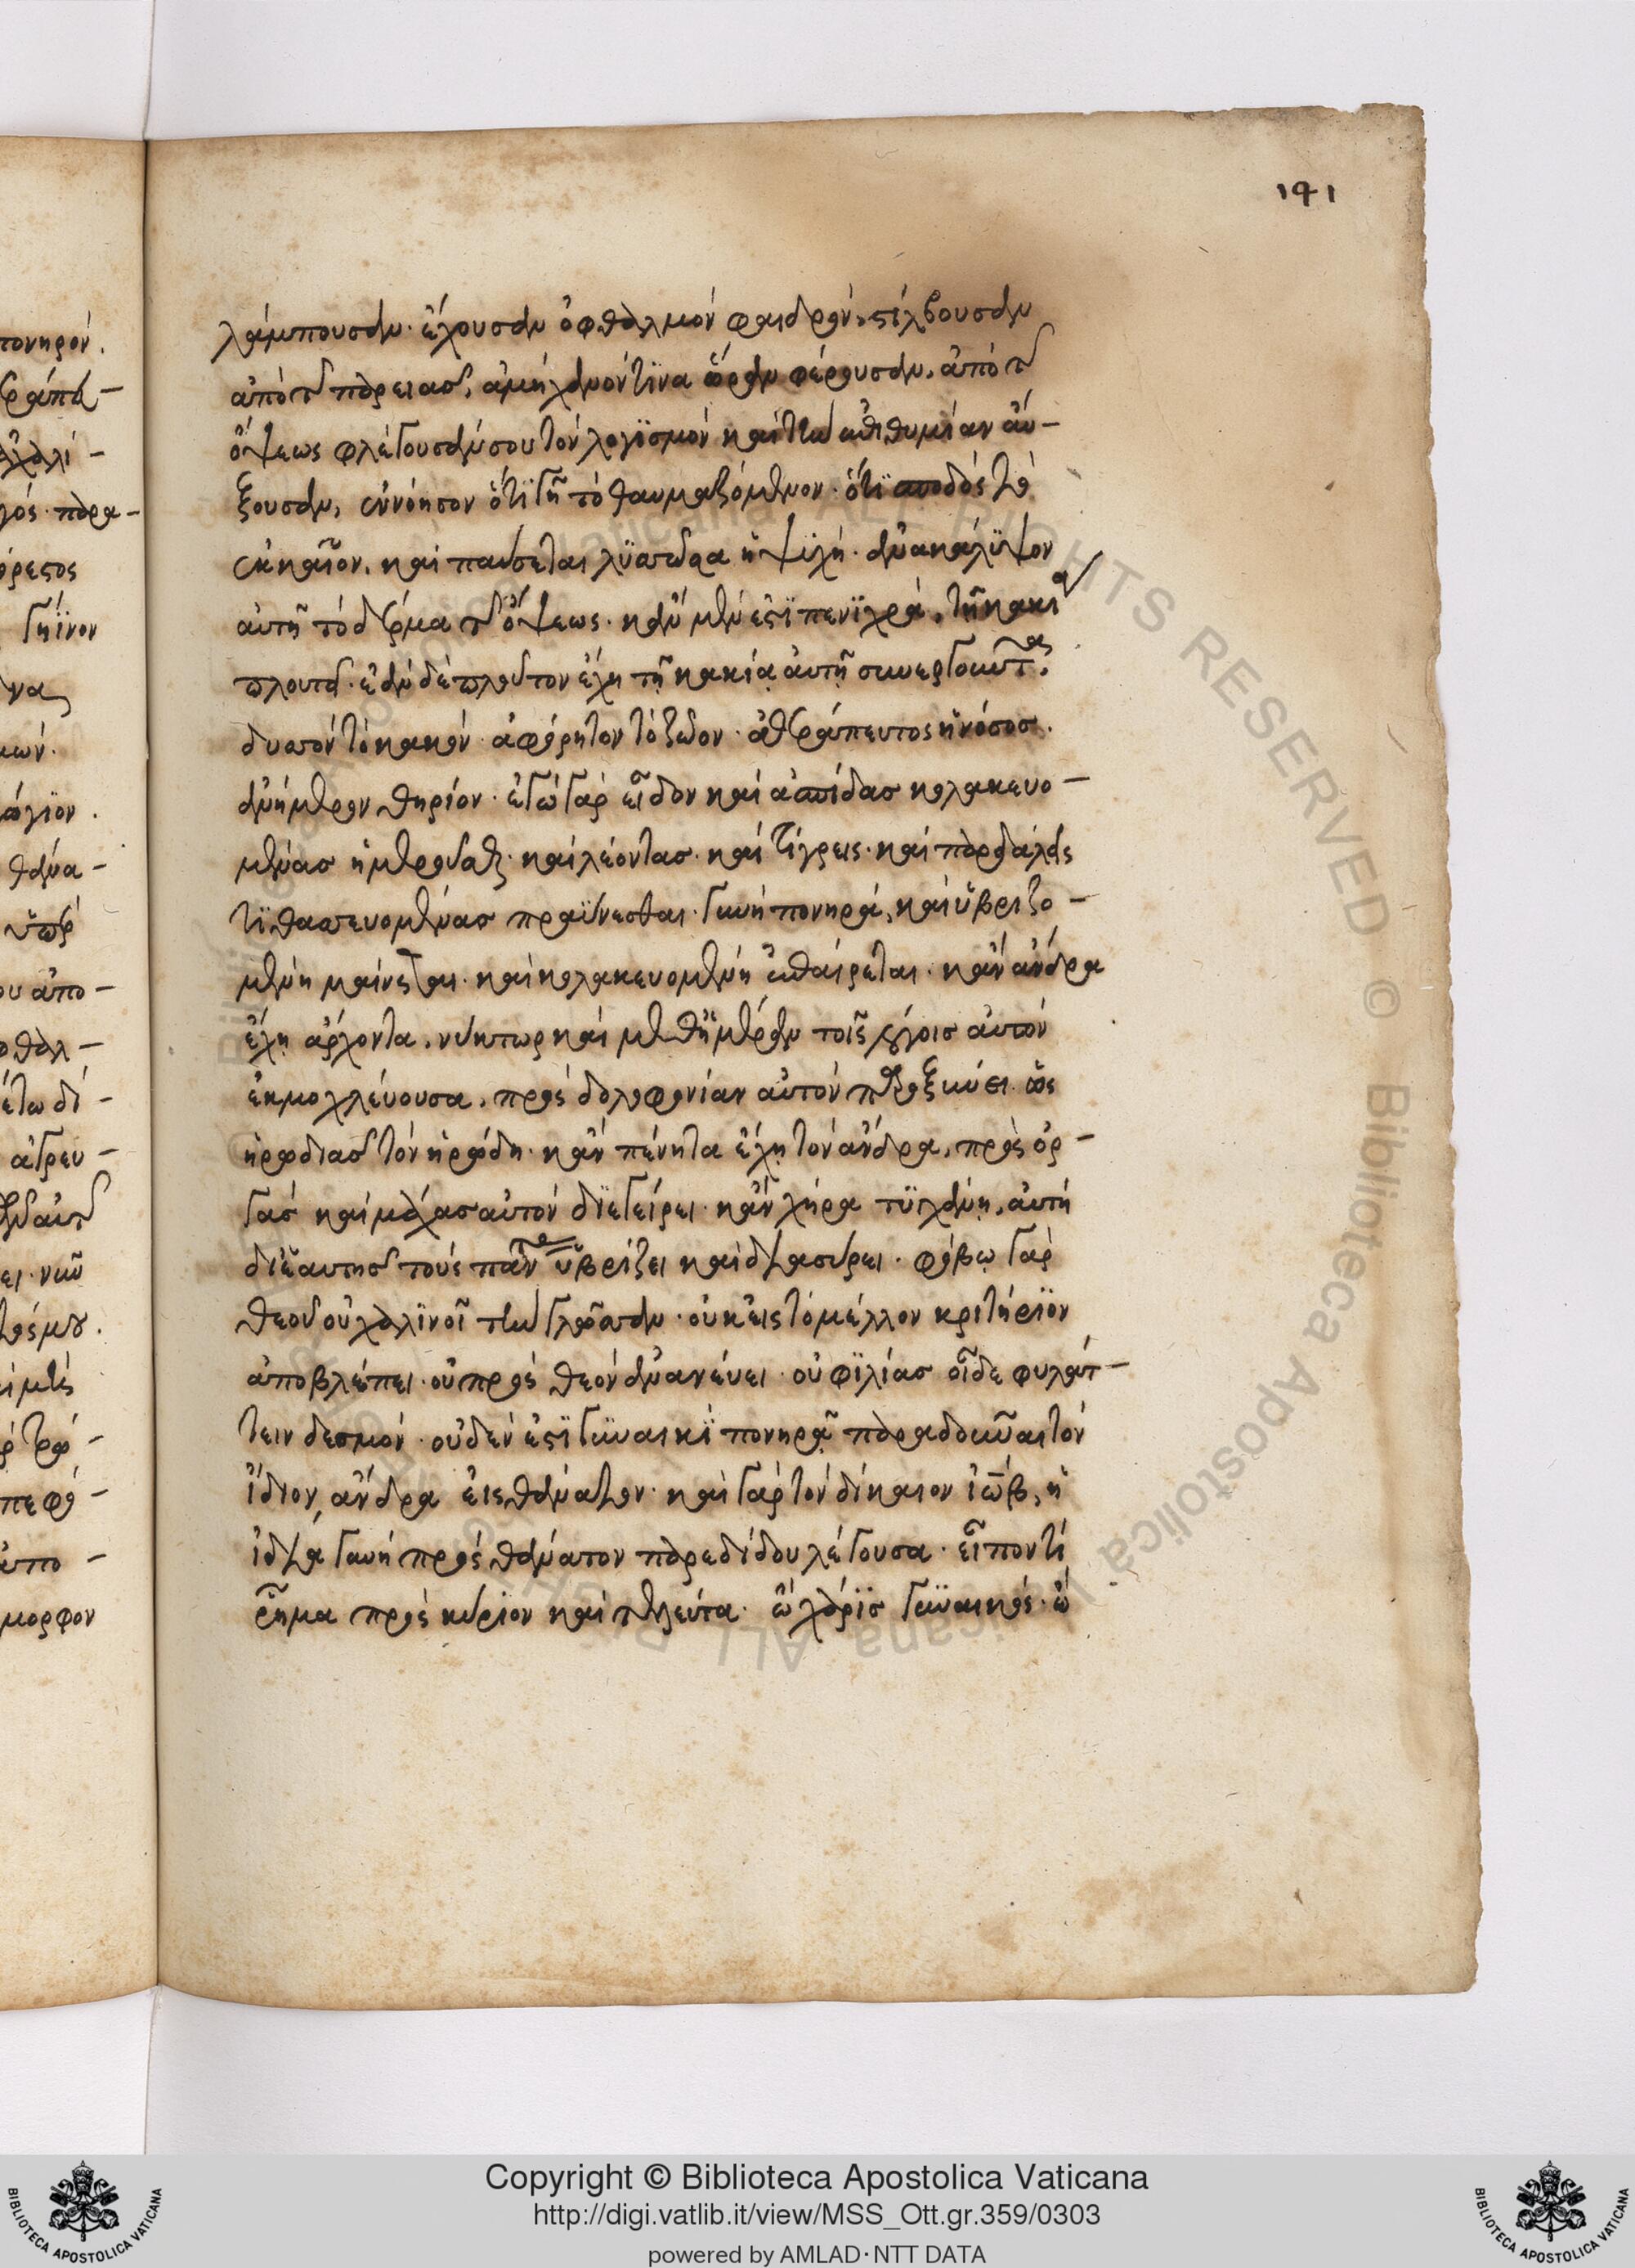 191
λάμπουσαν· ἔχουσαν ὀφθαλμόν φαιδρόν, στίλβουσαν
ἀπό τῆς παρειᾶς, ἀμήχανόν τινα ὥραν φέρουσαν, ἀπό τῆς
ὄψεως φλέγουσάν σου τόν λογϊσμόν καί τήν ἐπιθυμίαν αὔ-
ξουσαν, ἐννόησον ὅτϊ γῆ τό θαυμαζόμενον· ὅτϊ σποδός τό
ἐκκαῖον, καί παύσεται λϋττῶσα ἡ ψυχή· ἀνακάλυψον
αὐτῆς τό δέρμα τῆς ὄψεως· κἄν μέν ἐστϊ πενϊχρά, τῇ κακίᾳ
πλουτεῖ· ἐάν δέ πλοῦτον ἔχῃ τῇ κακίᾳ αὐτῆς συνεργοῦντα,
δισσόν τό κακόν· ἀφόρητον τό ζῶον· ἀθεράπευτος ἡ νόσος·
ἀνήμερον θηρίον· ἐγώ γάρ εἶδον καί ἀσπίδας κολακευο-
μένας ἡμεροῦσθαι· καί λέοντας· καί τίγρεις· καί παρδάλεις
τϊθασσευομένας πραΰνεσθαι· γυνή πονηρά, καί ὑβριζο-
μένη μαίνεται· καί κολακευομένη ἐπαίρεται· κἄν ἄνδρα
ἔχῃ ἄρχοντα, νύκτωρ καί μεθ' ἡμέραν τοῖς λόγοις αὐτόν
ἐκμοχλεύουσα, πρός δολοφονίαν αὐτόν παροξύνει· ὡς
ἡρωδιάς τόν ἡρώδη· κἄν πένητα ἔχῃ τόν ἄνδρα, πρός ὀρ-
γάς καί μάχας αὐτόν διεγείρει· κἄν χήρα τϋγχάνῃ, αὐτή
δι' ἑαυτῆς τούς πάντας ὑβρίζει καί διασύρει· φόβῳ γάρ
θεοῦ οὐ χαλϊνοῖ τήν γλῶτταν· οὐκ εἰς τό μέλλον κριτήριον
ἀποβλέπει· οὐ πρός θεόν ἀνανεύει· οὐ φϊλίας οἶδε φυλάτ-
τειν δεσμόν· οὐδέν ἐστϊ γϋναικϊ πονηρᾷ παραδοῦναι τόν
ἴδιον ἄνδρα εἰς θάνατον· καί γάρ τόν δίκαιον ἰώβ, ἡ
ἰδία γυνή πρός θάνατον παρεδίδου λέγουσα· εἶπόν τι
ῥῆμα πρός κύριον καί τελεύτα· ὤ χάρϊς γϋναικός· ὤ
Copyright © Biblioteca Apostolica Vaticana
http://digi.vatlib.it/view/MSS_Ott.gr.359/0303
powered by AMLAD·NTT DATA
BIBLIOTECA APOSTOLICA VATICANA
BIBLIOTECA APOSTOLICA VATICANA